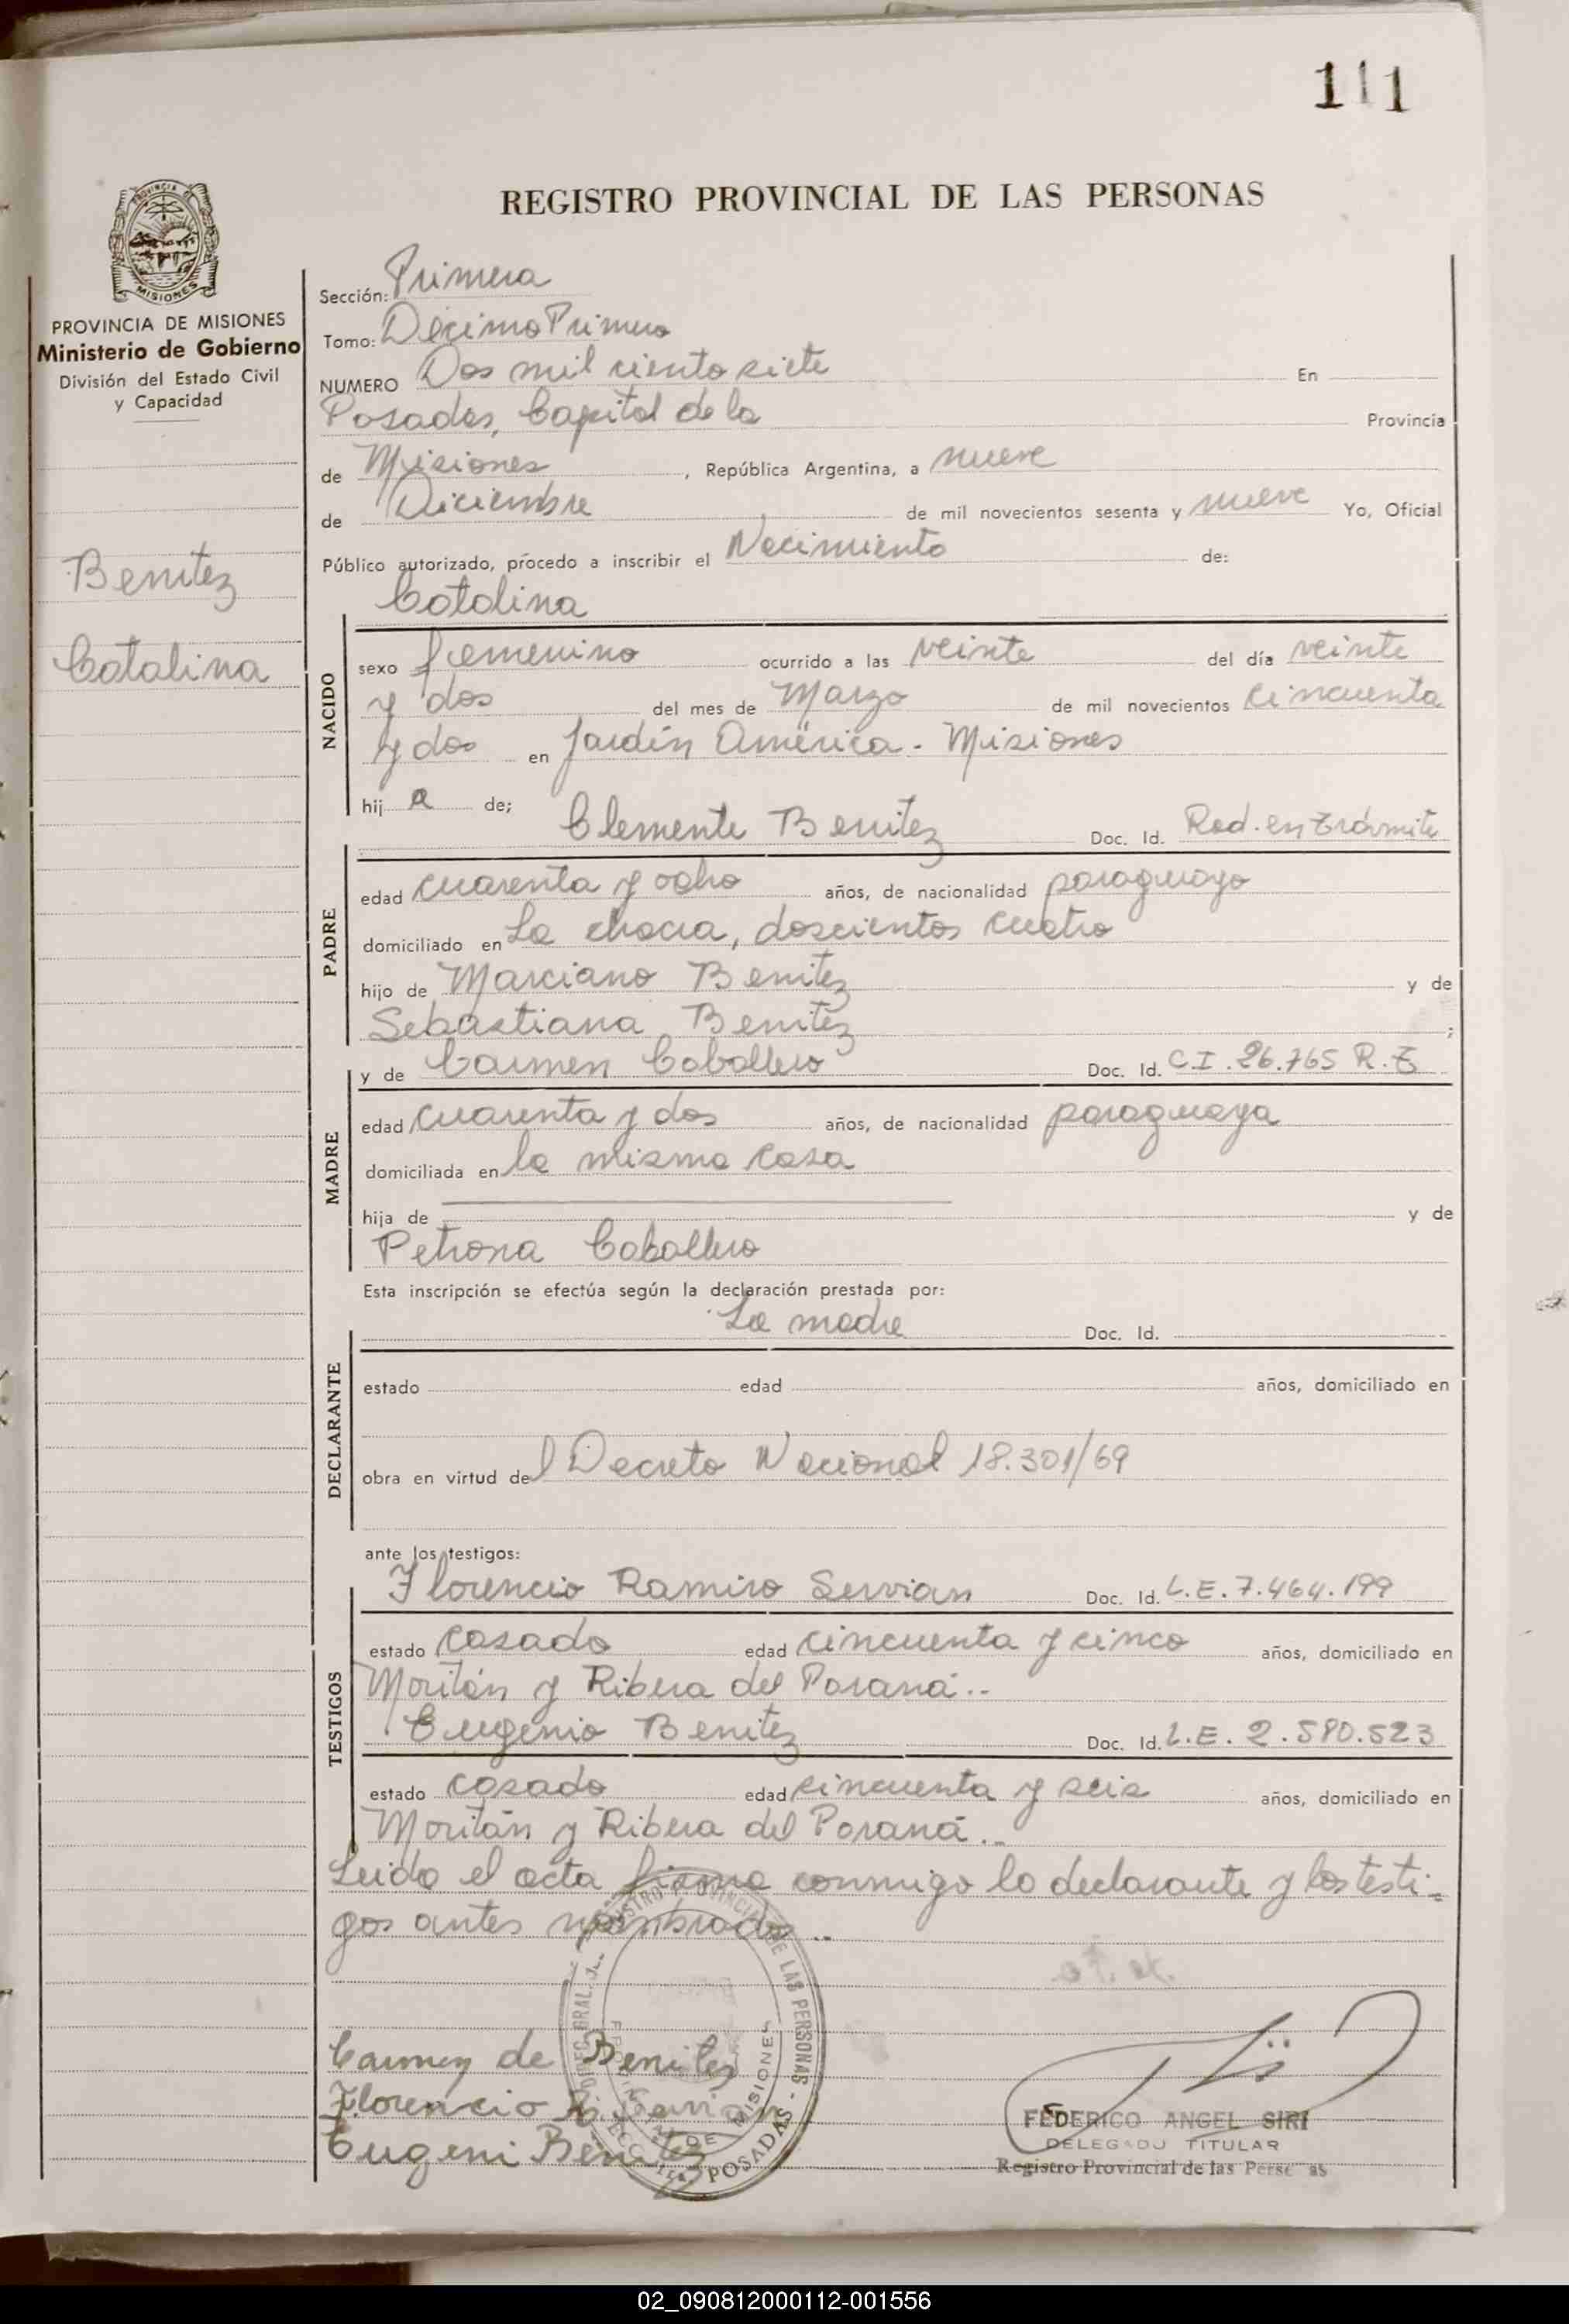 111
REGISTRO PROVINCIAL DE LAS PERSONAS
PROVINCIA DE MISIONES
Ministerio de Gobierno
División del Estado Civil
y Capacidad
Benitez
Catalina
Sección: Primera
Tomo: Décimo Primero
NUMERO Dos mil ciento siete En
Posadas, Capital de la Provincia
de Misiones, República Argentina, a nueve
de Diciembre de mil novecientos sesenta y nueve Yo, Oficial
Público autorizado, procedo a inscribir el Nacimiento de:
Catalina
NACIDO
sexo femenino ocurrido a las veinte del día veinte
y dos del mes de Marzo de mil novecientos cincuenta
y dos en Jardín América - Misiones
hij a de;
Clemente Benitez Doc. Id. Rad. en trámite
PADRE
edad cuarenta y ocho años, de nacionalidad paraguayo
domiciliado en La chacra, doscientos cuatro
hijo de Marciano Benitez y de
Sebastiana Benitez ;
y de Carmen Caballero Doc. Id. C.I. 26.765 R.E
MADRE
edad cuarenta y dos años, de nacionalidad paraguaya
domiciliada en la misma casa
hija de y de
Petrona Caballero
Esta inscripción se efectúa según la declaración prestada por:
La madre Doc. Id.
DECLARANTE
estado edad años, domiciliado en
obra en virtud de l Decreto Nacional 18.301/69
ante los testigos:
Florencio Ramiro Servian Doc. Id. L.E. 7.464.199
TESTIGOS
estado casado edad cincuenta y cinco años, domiciliado en
Moritán y Ribera del Paraná..
Eugenio Benitez Doc. Id. L.E. 2.580.523
estado casado edad cincuenta y seis años, domiciliado en
Moritán y Ribera del Paraná..
Leida el acta firma conmigo la declarante y los testi-
gos antes nombrados..
Carmen de Benites
Florencio R. Servian
Eugeni Benitez
FEDERICO ANGEL SIRI
DELEGADO TITULAR
Registro Provincial de las Personas
02_090812000112-001556